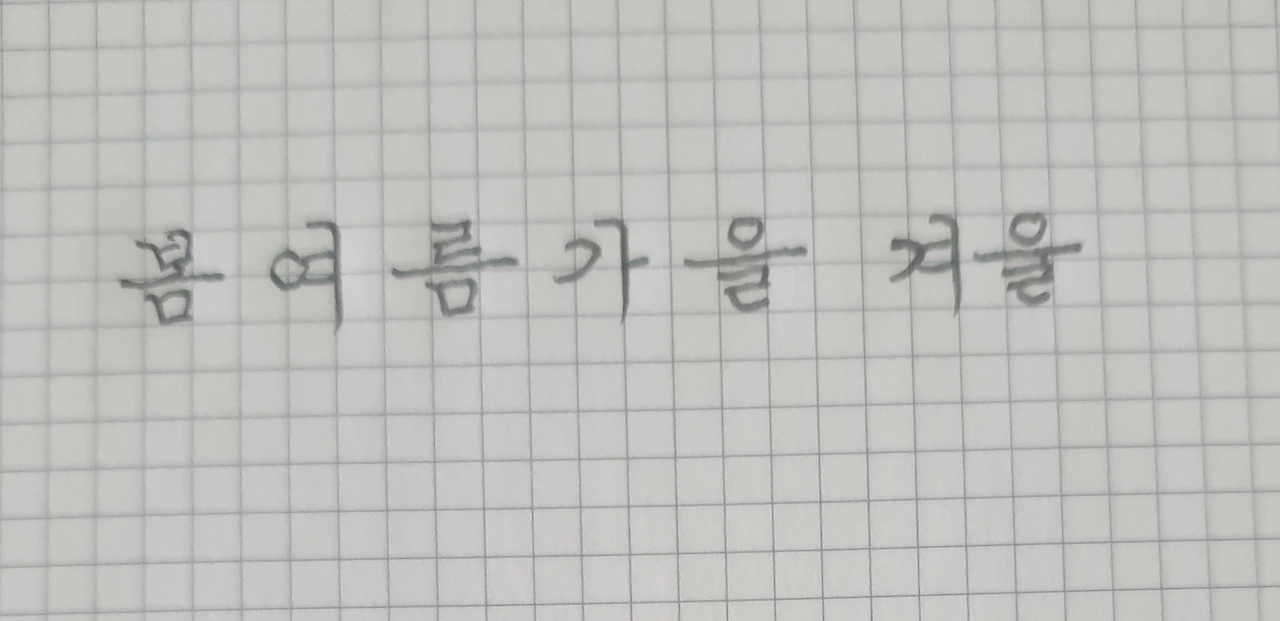 봄 여름 가을 겨울